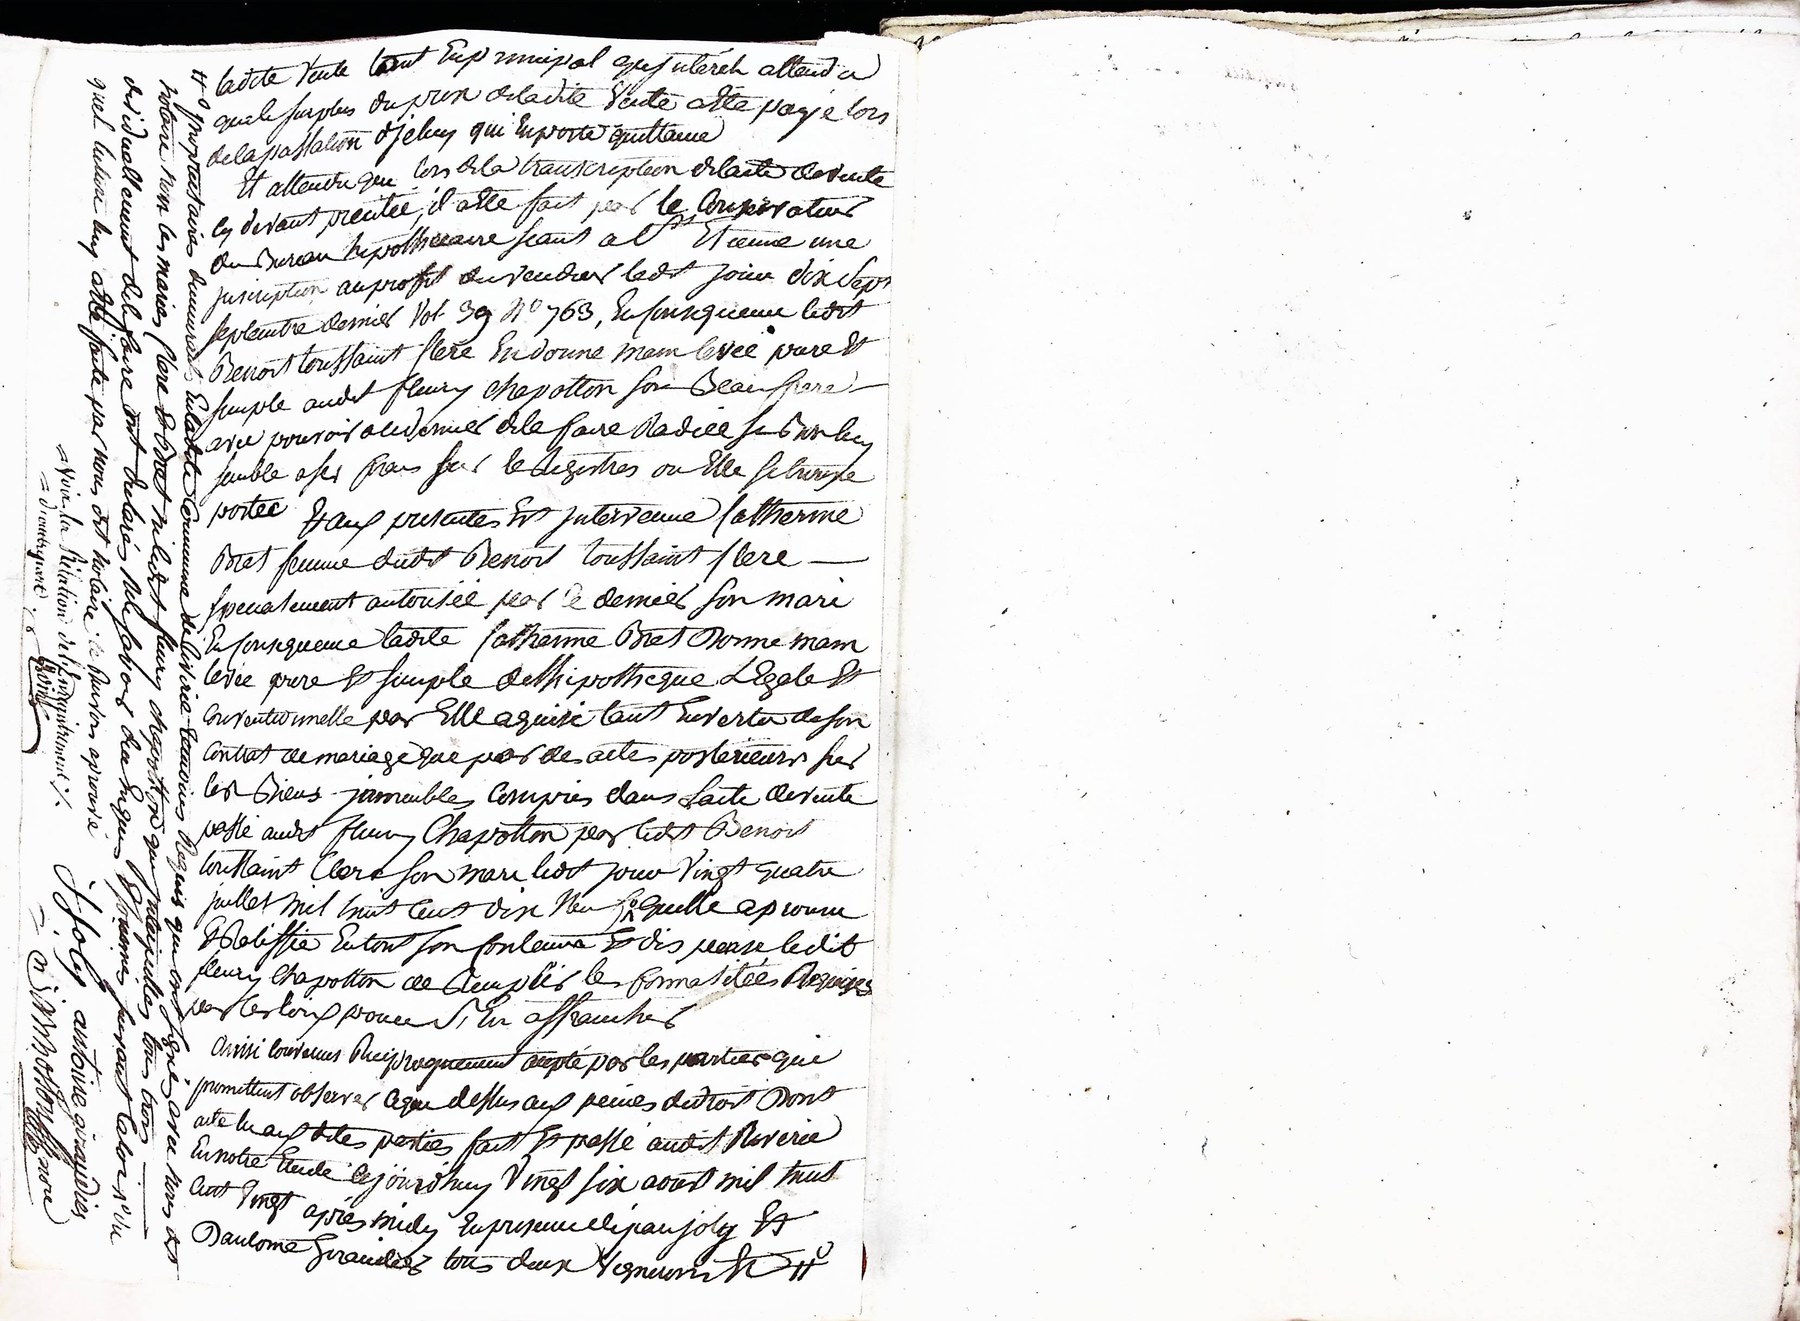 ladite vente tant En principal qu'jnterêts attendu
que le surplus du prix deladite Vente aété payé lors
delapassation d'jcelui qui En porte quittance
Et attendu que lors dela transcription delacte devente
cy devant precité, il aété fait par le Conservateur
du Bureau hipothecaire seant a St Etienne une
juscription auprofit du vendeur ledit jour dix sept
septembre dernier Vol 39 No 763, En Consequence ledit
Benoit toussaint Clere En donne main levée pure Et
simple audit fleury chapotton son Beau frere
avec pouvoir a ce dernier dela faire Radiée si Bon luy
semble a ses frais sur le Registres ou Elle se trouve
portée Et aux presentes Est jntervenue Catherine
Bret femme dudit Benoit toussaint Clere
specialement autorisée par ce dernier son mari
En Consequence ladite Catherine Bret Donne main
levée pure Et simple delhipotheque LEgale Et
Conventionnelle par Elle aquise tant En vertu de son
Contrat de mariage que par des actes posterieurs sur
les Biens jmmeubles Compris dans Lacte devente
passé audit fleury Chapotton par ledit Benoit
toussaint Clere son mari ledit jour Vingt quatre
juillet mil huit Cent dix neuf quelle aprouve
Et Ratiffie En tout son Contenu Et dispense ledit
fleury Chapotton de Remplir les formalitées Requises
par les loix pour s'En affranchir
Ainsi Convenus Reciproquement accepté par les parties qui
promettent observer ce que dessus aux peines dudroit Dont
acte lu aux dites parties fait Et passé audit Riverie
En notre Etude cejourd'huy Vingt six aout mil huit
Cent Vingt après midy En presence de jean joly Et
D'antoine Giraudier tous deux Vignerons Et #
# proprietaires demeurants En ladite Commune de Riverie temoins Requis qui ont signé avec nous dit
notaire non les mariés Clere Et Bret ni ledit fleury chapotton qui jnterpellés tous trois
dividuellement dele faire ont declarés ne le savoir deux Enquis Et sommés suivant la loi Et du
quel lecture luy aété faite par nous dit notaire le Renvoi aprouvé
J: Joly antoine giraudier
= Voir la Relation del'Enregistrement ./.
= d'autre part. =